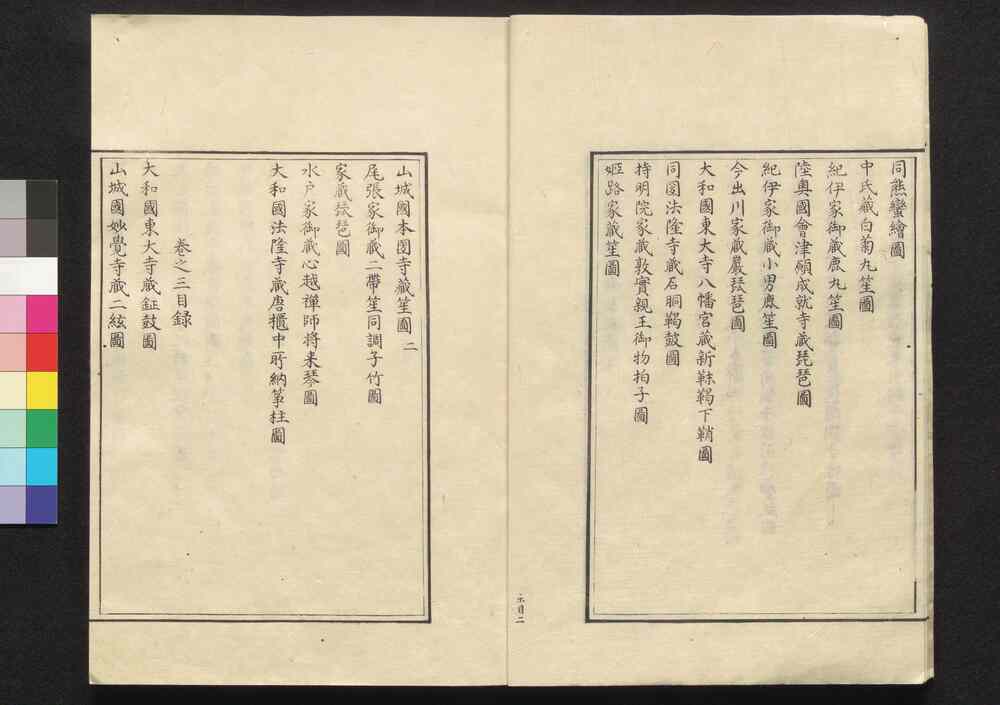 同熊蠻繪圖
中氏藏白菊丸笙圖
紀伊家御藏鹿丸笙圖
陸奥國會津願成就寺藏琵琶圖
紀伊家御藏小男鹿笙圖
今出川家藏巖琵琶圖
大和國東大寺八幡宮藏新靺鞨下鞘圖
同國法隆寺藏石胴鞨鼓圖
持明院家藏敦實親王御物拍子圖
姬路家藏笙圖
山城國本圀寺藏笙圖 二
尾張家御藏二帶笙同調子竹圖
家藏琵琶圖
水户家御藏心越禪師将来琴圖
大和國法隆寺藏唐櫃中所納筝柱圖
卷之三目録
大和國東大寺藏鉦鼓圖
山城國妙覺寺藏二絃圖